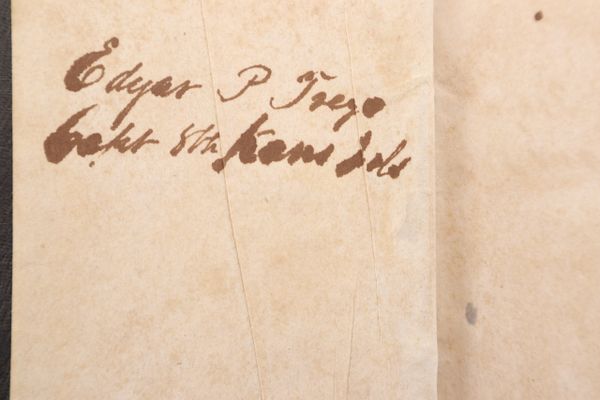 Edgar P Trego
Capt 8th Kans Vols